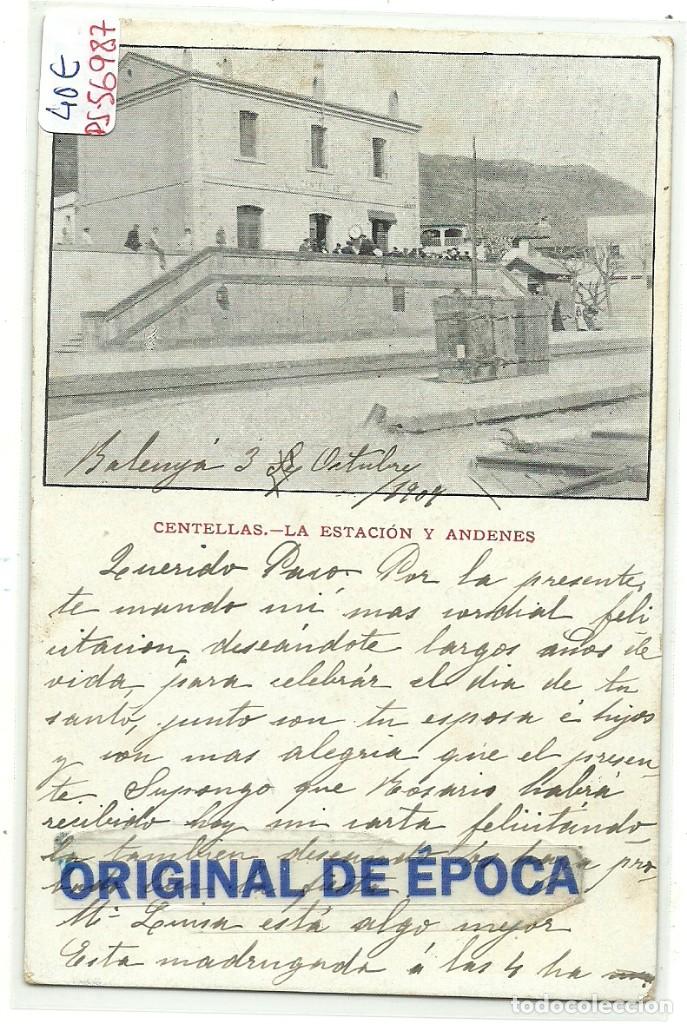 40€
PS-56987
CENTELLAS
Balenyá 3 de Octubre
1904
CENTELLAS.—LA ESTACIÓN Y ANDENES
Querido Paco. Por la presente,
te mando mi mas cordial feli
citacion, deseándote largos años de
vida, para celebrár el dia de tu
santo, junto con tu esposa é hijos
y con mas alegria que el presen-
te Supongo que Rosario habrá
recibido hoy mi carta felicitándo
la tambien
ORIGINAL DE ÉPOCA
Mª Luisa está algo mejor
Esta madrugada á las 4 ha
todocoleccion